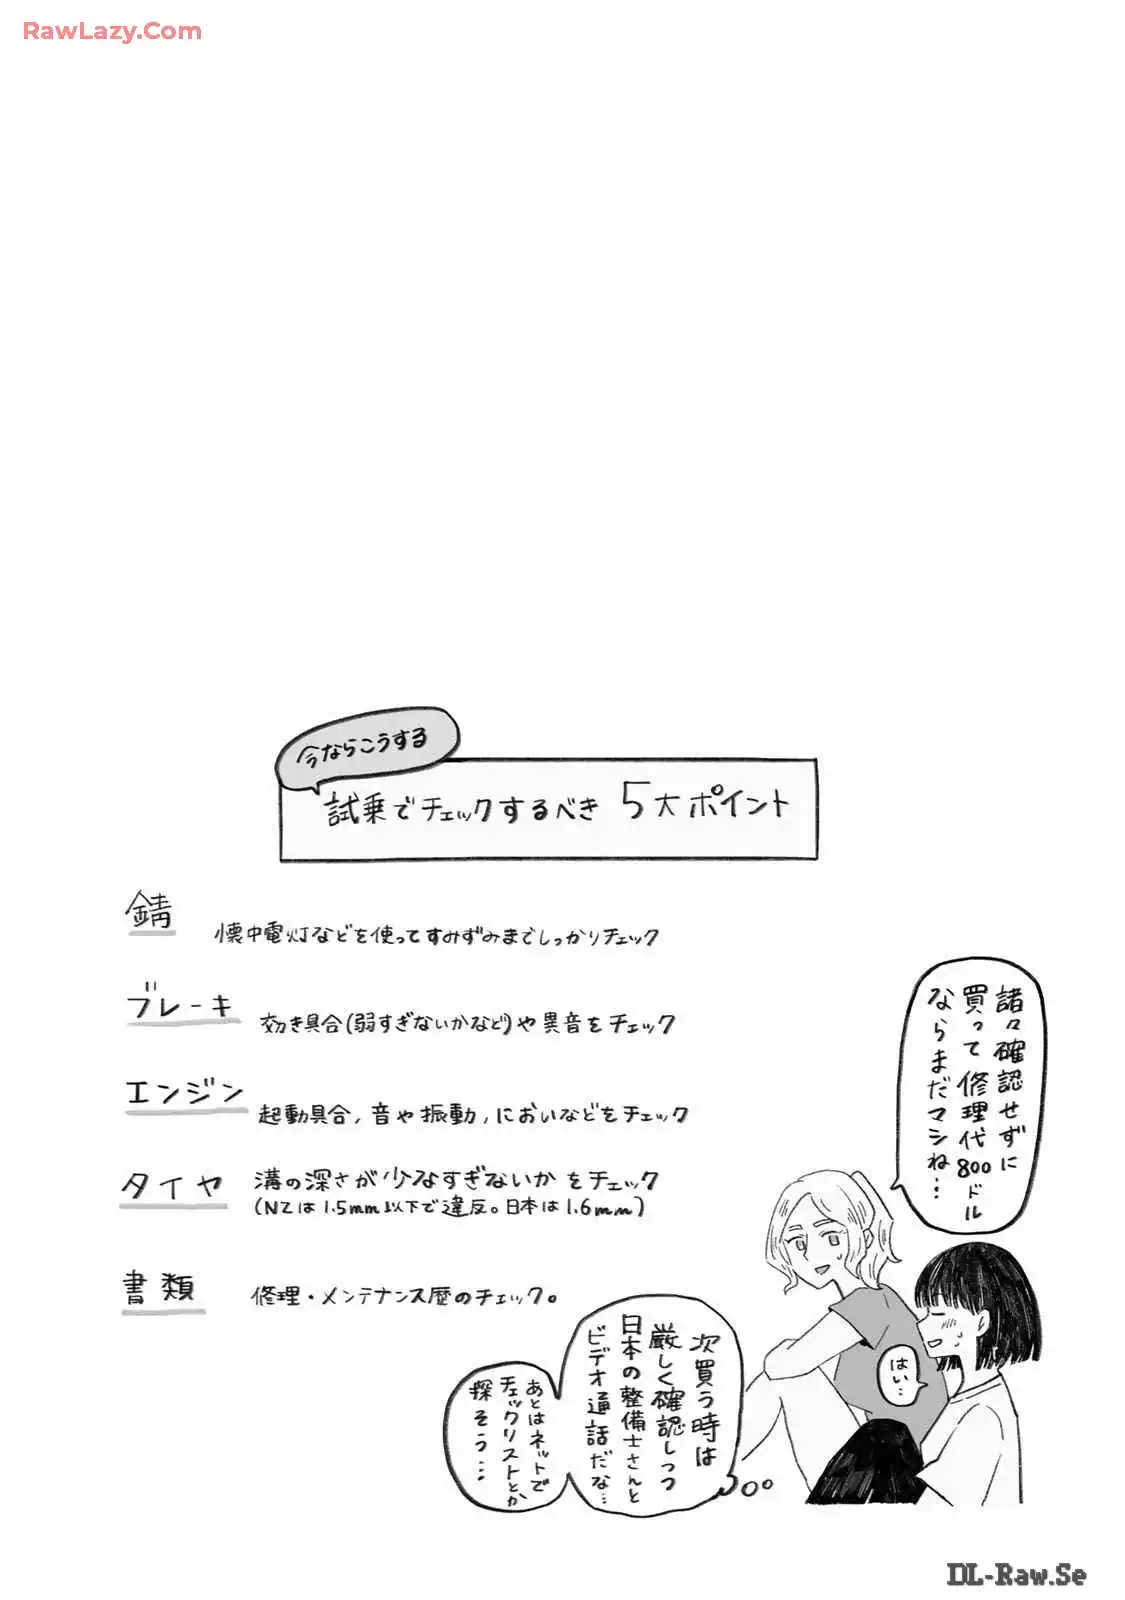 RawLazy.Com
今ならこうする
試乗でチェックするべき 5大ポイント
錆
懐中電灯などを使ってすみずみまでしっかりチェック
ブレーキ
効き具合(弱すぎないかなど)や異音をチェック
エンジン
起動具合,音や振動,においなどをチェック
タイヤ
溝の深さが少なすぎないかをチェック
(NZは1.5mm以下で違反。日本は1.6mm)
書類
修理・メンテナンス歴のチェック。
諸々確認せずに
買って修理代800ドル
ならまだマシね…
はい…
次買う時は
厳しく確認しつつ
日本の整備士さんと
ビデオ通話だな…
あとはネットで
チェックリストとか
探そう…
DL-Raw.Se